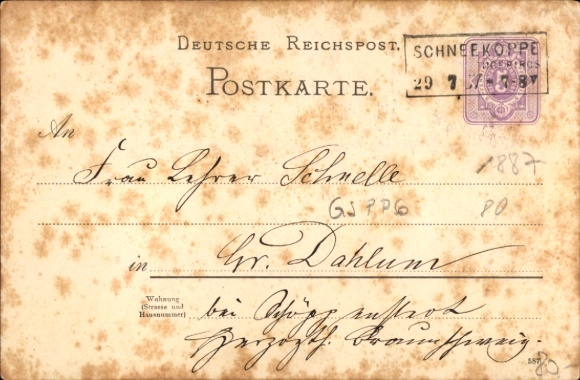 DEUTSCHE REICHSPOST.
POSTKARTE.
SCHNEEKOPPE
29 7 87 * 7-8V
An
Frau Lehrer Schnelle
1887
GJPPG 80
in Gr. Dahlum
Wohnung
(Strasse und
Hausnummer)
bei Schöppenstedt
Herzogth. Braunschweig.
587
80.-